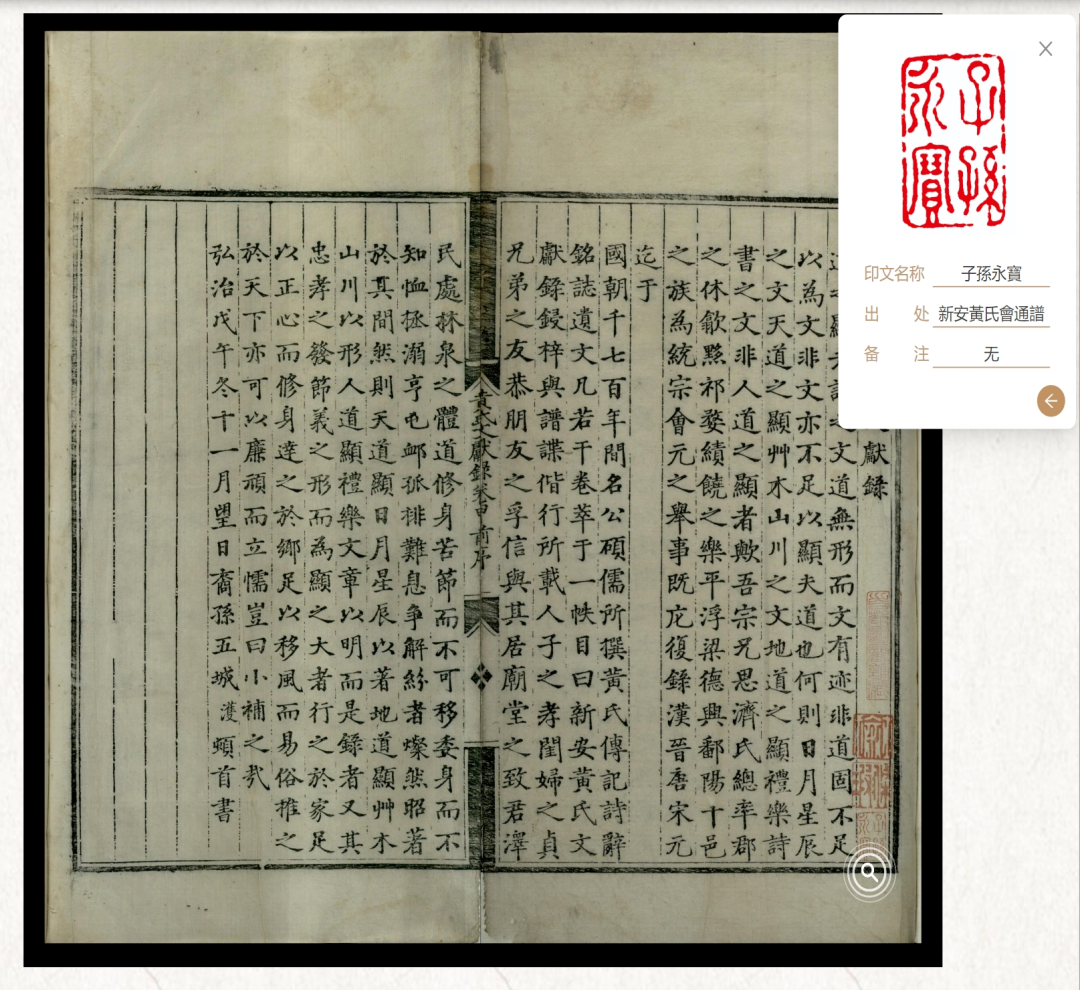 子孫永寶
印文名称 子孫永寶
出 处 新安黃氏會通譜
备 注 无
獻錄
之文道無形而文有迹非道固不足
以為文非文亦不足以顯夫道也何則日月星辰
之文天道之顯艸木山川之文地道之顯禮樂詩
書之文非人道之顯者歟吾宗兄思濟氏總率郡
之休歙黟祁婺績饒之樂平浮梁德興鄱陽十邑
之族為統宗會元之舉事既庀復錄漢晉唐宋元
迄于
國朝千七百年間名公碩儒所撰黃氏傳記詩辭
銘誌遺文凡若干卷萃于一帙目曰新安黃氏文
獻錄鋟梓與譜諜偕行所載人子之孝閨婦之貞
兄弟之友恭朋友之孚信與其居廟堂之致君澤
黃氏文獻錄卷甲 前序
民處林泉之體道修身苦節而不可移委身而不
知恤拯溺亨屯邺孤排難息爭解紛者燦然昭著
於其間然則天道顯日月星辰以著地道顯艸木
山川以形人道顯禮樂文章以明而是錄者又其
忠孝之發節義之形而為顯之大者行之於家足
以正心而修身達之於鄉足以移風而易俗推之
於天下亦可以廉頑而立懦豈曰小補之㢤
弘治戊午冬十一月望日裔孫五城濩頓首書